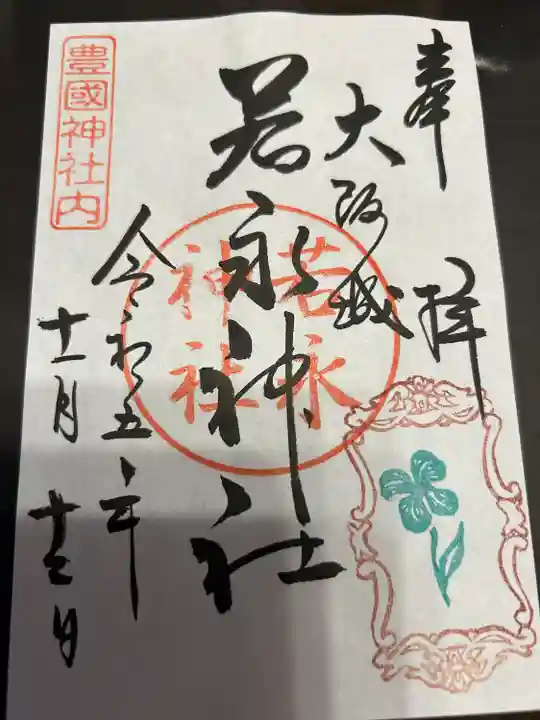 奉拝
大阪城
若永神社
若永
神社
令和五年
十一月十二日
豊國神社内